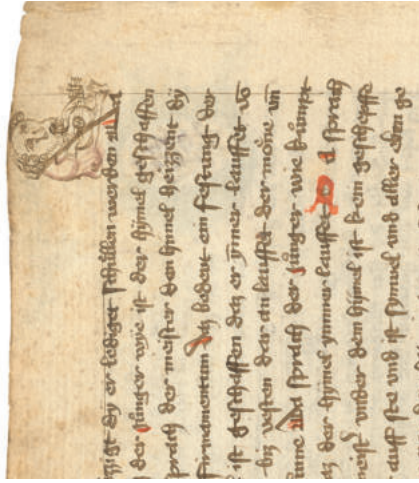 er lediget schullen werden all
der Junger wye ist der hymel geschaffen
sprach der meister den hymel heizzent dy
Firmamentum daz bedeut ein festung der
ist geschaffen daz er ymmer lauffet vo
biz vesten dar an lauffet der mone vn
sunne Do sprach der Junger wie kumpt
daz der hymel ymmer lauffet D sprach
meister vnder dem hymel ist kein geschepffe
dar auff ste vnd ist synwel vnd aller eben ge